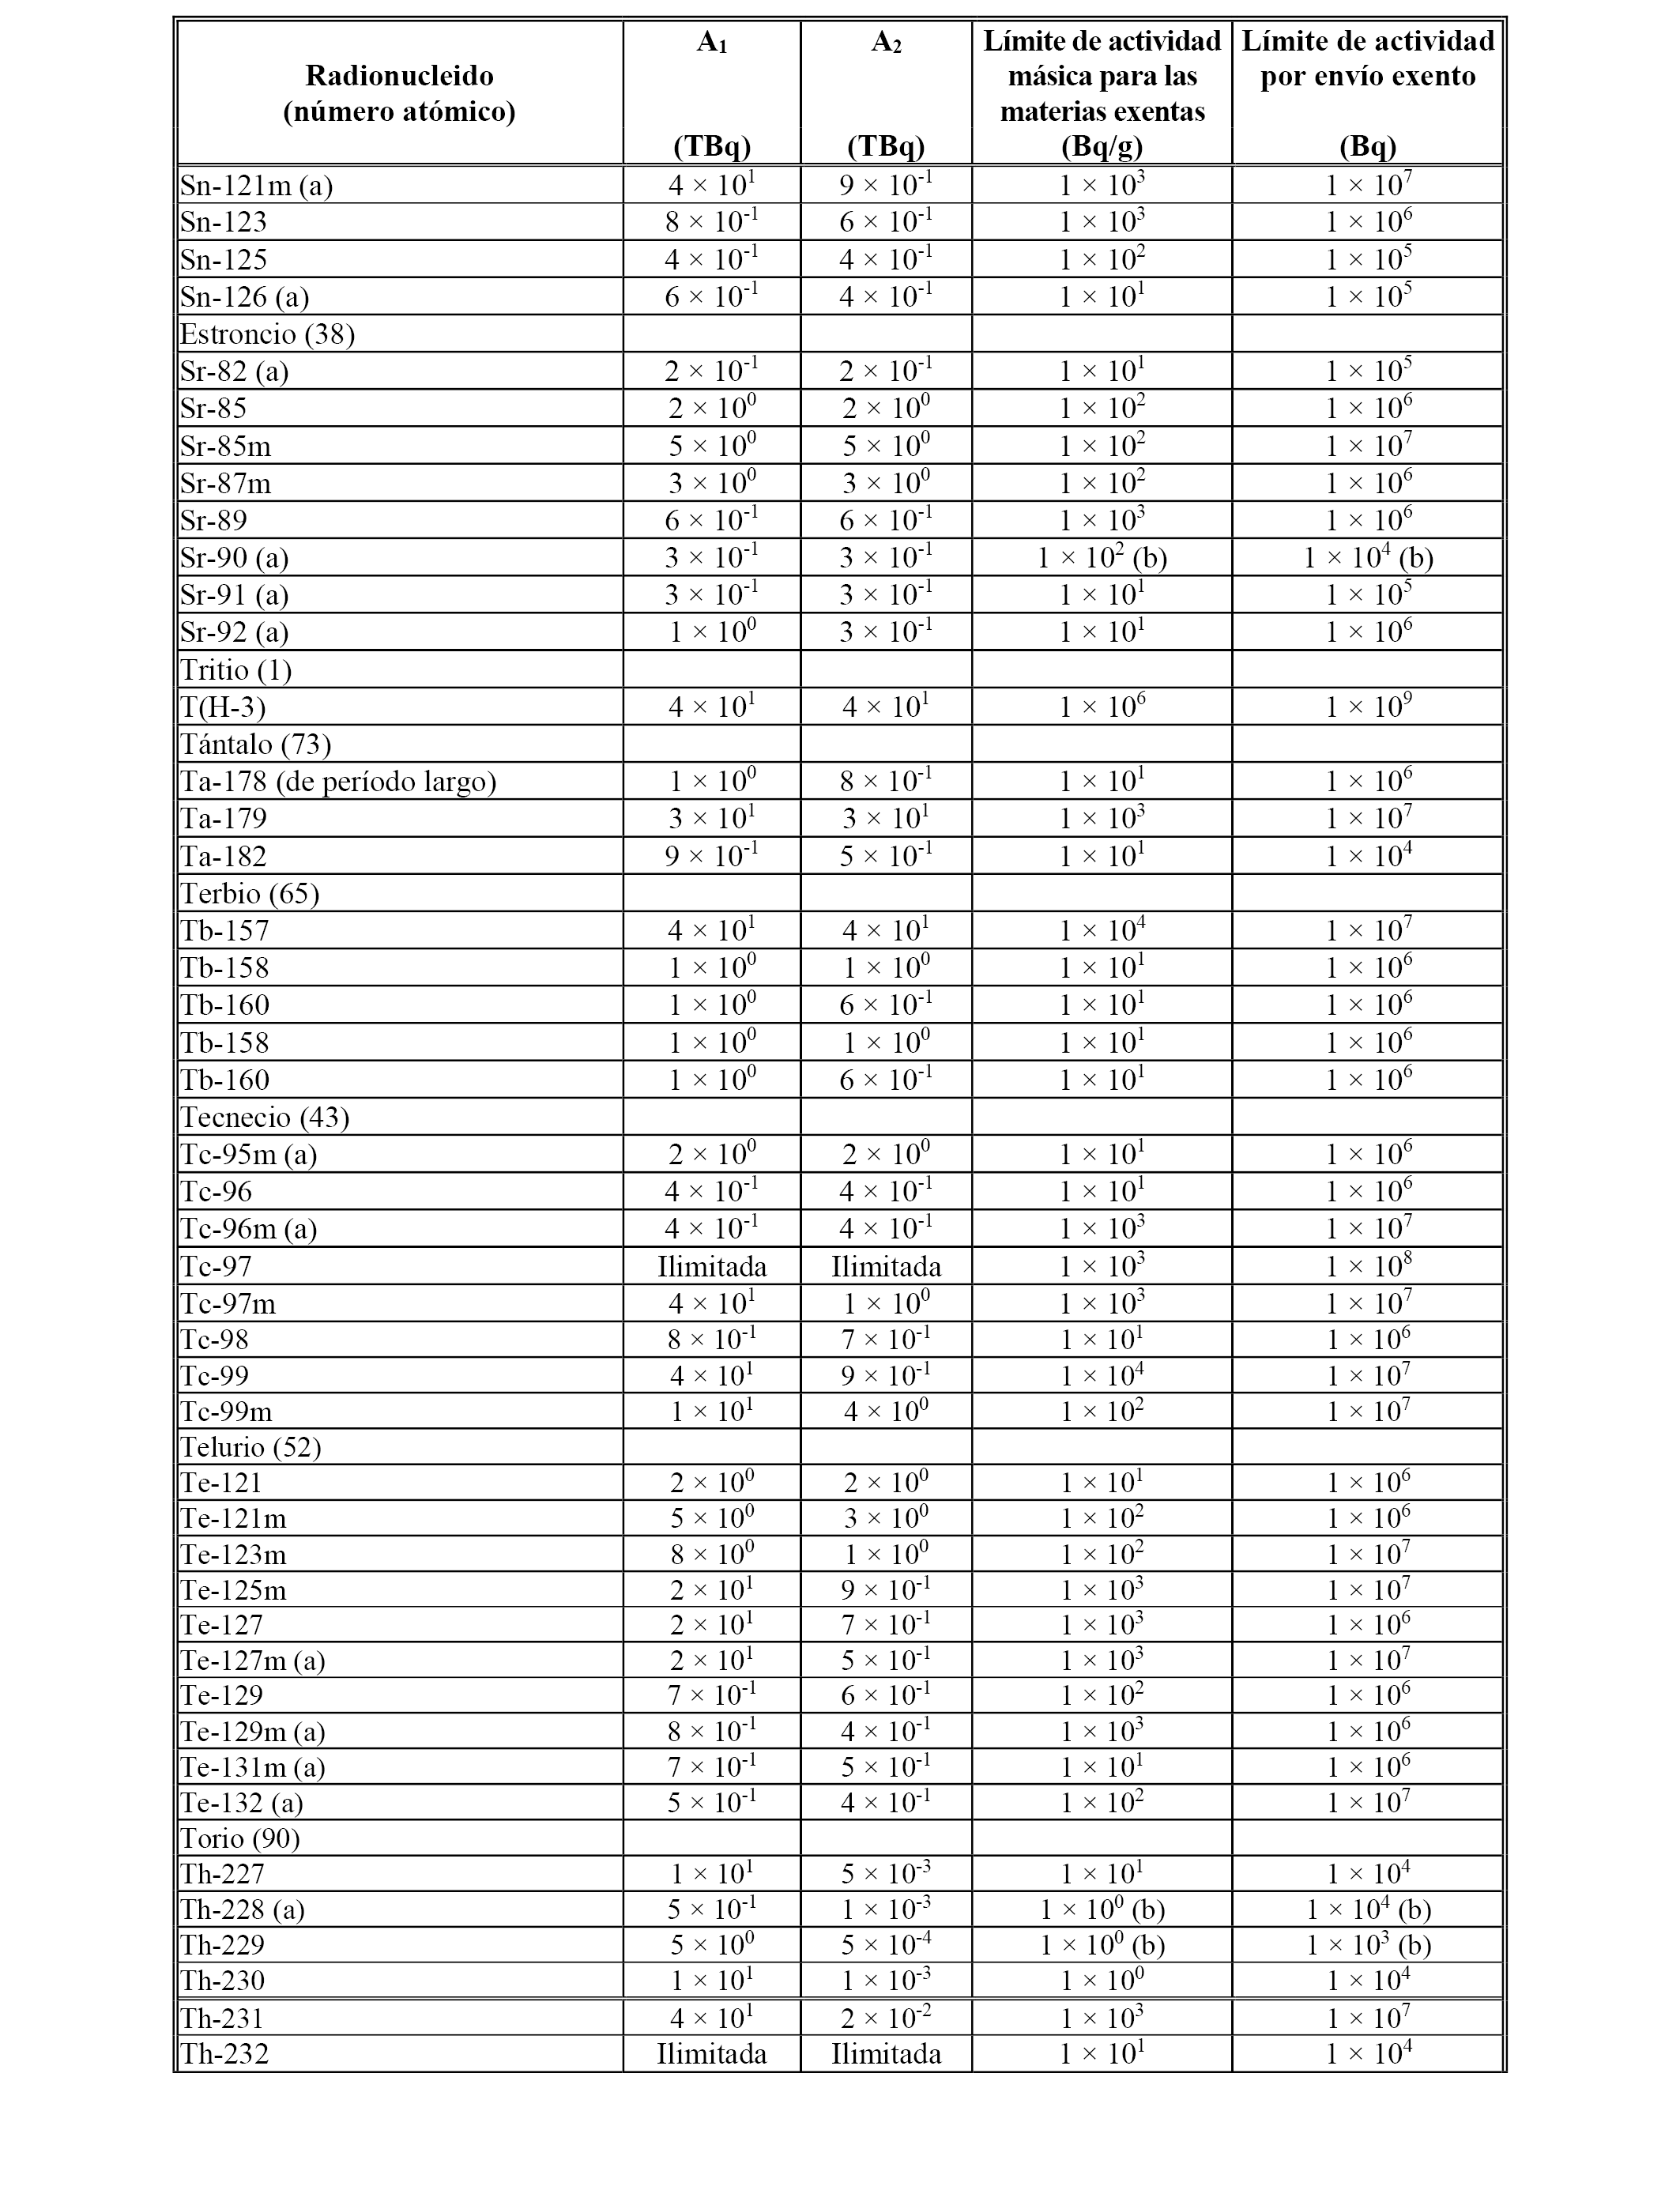 Radionucleido (número atómico) | A₁ (TBq) | A₂ (TBq) | Límite de actividad másica para las materias exentas (Bq/g) | Límite de actividad por envío exento (Bq)
Sn-121m (a) 4 × 10¹ 9 × 10⁻¹ 1 × 10³ 1 × 10⁷
Sn-123 8 × 10⁻¹ 6 × 10⁻¹ 1 × 10³ 1 × 10⁶
Sn-125 4 × 10⁻¹ 4 × 10⁻¹ 1 × 10² 1 × 10⁵
Sn-126 (a) 6 × 10⁻¹ 4 × 10⁻¹ 1 × 10¹ 1 × 10⁵
Estroncio (38)
Sr-82 (a) 2 × 10⁻¹ 2 × 10⁻¹ 1 × 10¹ 1 × 10⁵
Sr-85 2 × 10⁰ 2 × 10⁰ 1 × 10² 1 × 10⁶
Sr-85m 5 × 10⁰ 5 × 10⁰ 1 × 10² 1 × 10⁷
Sr-87m 3 × 10⁰ 3 × 10⁰ 1 × 10² 1 × 10⁶
Sr-89 6 × 10⁻¹ 6 × 10⁻¹ 1 × 10³ 1 × 10⁶
Sr-90 (a) 3 × 10⁻¹ 3 × 10⁻¹ 1 × 10² (b) 1 × 10⁴ (b)
Sr-91 (a) 3 × 10⁻¹ 3 × 10⁻¹ 1 × 10¹ 1 × 10⁵
Sr-92 (a) 1 × 10⁰ 3 × 10⁻¹ 1 × 10¹ 1 × 10⁶
Tritio (1)
T(H-3) 4 × 10¹ 4 × 10¹ 1 × 10⁶ 1 × 10⁹
Tántalo (73)
Ta-178 (de período largo) 1 × 10⁰ 8 × 10⁻¹ 1 × 10¹ 1 × 10⁶
Ta-179 3 × 10¹ 3 × 10¹ 1 × 10³ 1 × 10⁷
Ta-182 9 × 10⁻¹ 5 × 10⁻¹ 1 × 10¹ 1 × 10⁴
Terbio (65)
Tb-157 4 × 10¹ 4 × 10¹ 1 × 10⁴ 1 × 10⁷
Tb-158 1 × 10⁰ 1 × 10⁰ 1 × 10¹ 1 × 10⁶
Tb-160 1 × 10⁰ 6 × 10⁻¹ 1 × 10¹ 1 × 10⁶
Tb-158 1 × 10⁰ 1 × 10⁰ 1 × 10¹ 1 × 10⁶
Tb-160 1 × 10⁰ 6 × 10⁻¹ 1 × 10¹ 1 × 10⁶
Tecnecio (43)
Tc-95m (a) 2 × 10⁰ 2 × 10⁰ 1 × 10¹ 1 × 10⁶
Tc-96 4 × 10⁻¹ 4 × 10⁻¹ 1 × 10¹ 1 × 10⁶
Tc-96m (a) 4 × 10⁻¹ 4 × 10⁻¹ 1 × 10³ 1 × 10⁷
Tc-97 Ilimitada Ilimitada 1 × 10³ 1 × 10⁸
Tc-97m 4 × 10¹ 1 × 10⁰ 1 × 10³ 1 × 10⁷
Tc-98 8 × 10⁻¹ 7 × 10⁻¹ 1 × 10¹ 1 × 10⁶
Tc-99 4 × 10¹ 9 × 10⁻¹ 1 × 10⁴ 1 × 10⁷
Tc-99m 1 × 10¹ 4 × 10⁰ 1 × 10² 1 × 10⁷
Telurio (52)
Te-121 2 × 10⁰ 2 × 10⁰ 1 × 10¹ 1 × 10⁶
Te-121m 5 × 10⁰ 3 × 10⁰ 1 × 10² 1 × 10⁶
Te-123m 8 × 10⁰ 1 × 10⁰ 1 × 10² 1 × 10⁷
Te-125m 2 × 10¹ 9 × 10⁻¹ 1 × 10³ 1 × 10⁷
Te-127 2 × 10¹ 7 × 10⁻¹ 1 × 10³ 1 × 10⁶
Te-127m (a) 2 × 10¹ 5 × 10⁻¹ 1 × 10³ 1 × 10⁷
Te-129 7 × 10⁻¹ 6 × 10⁻¹ 1 × 10² 1 × 10⁶
Te-129m (a) 8 × 10⁻¹ 4 × 10⁻¹ 1 × 10³ 1 × 10⁶
Te-131m (a) 7 × 10⁻¹ 5 × 10⁻¹ 1 × 10¹ 1 × 10⁶
Te-132 (a) 5 × 10⁻¹ 4 × 10⁻¹ 1 × 10² 1 × 10⁷
Torio (90)
Th-227 1 × 10¹ 5 × 10⁻³ 1 × 10¹ 1 × 10⁴
Th-228 (a) 5 × 10⁻¹ 1 × 10⁻³ 1 × 10⁰ (b) 1 × 10⁴ (b)
Th-229 5 × 10⁰ 5 × 10⁻⁴ 1 × 10⁰ (b) 1 × 10³ (b)
Th-230 1 × 10¹ 1 × 10⁻³ 1 × 10⁰ 1 × 10⁴
Th-231 4 × 10¹ 2 × 10⁻² 1 × 10³ 1 × 10⁷
Th-232 Ilimitada Ilimitada 1 × 10¹ 1 × 10⁴